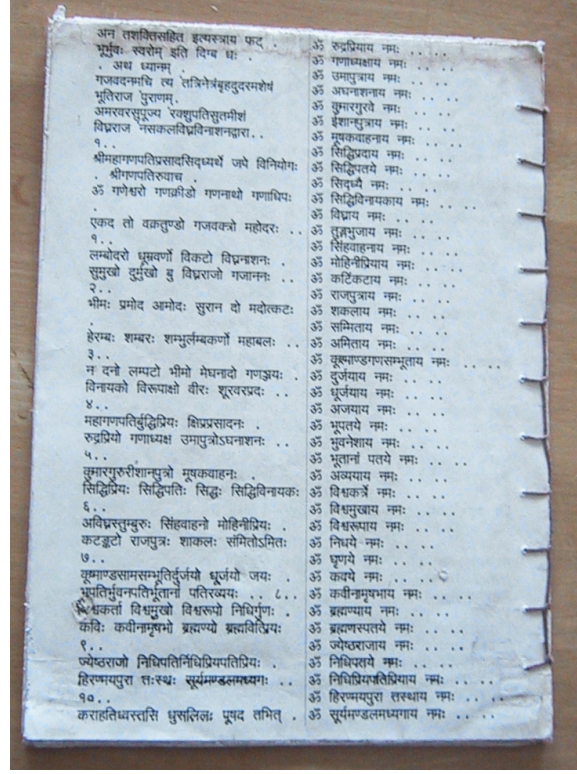 अन तशक्तिसहित इत्यस्त्राय फट् .
भूर्भुवः स्वरोम् इति दिग्ब धः .
. अथ ध्यानम् .
गजवदनमचि त्य तत्रिनेत्रंबृहदुदरमशेषं
भूतिराज पुराणम् .
अमरवरसुपूज्य रक्शुपतिसुतमीशं
विघ्नराज नसकलविघ्नविनाशनद्वारा . .
१ . .
श्रीमहागणपतिप्रसादसिद्ध्यर्थे जपे विनियोगः
. श्रीगणपतिरुवाच .
ॐ गणेश्वरो गणक्रीडो गणनाथो गणाधिपः
.
एकद तो वक्रतुण्डो गजवक्त्रो महोदरः . .
१ . .
लम्बोदरो धूम्रवर्णो विकटो विघ्ननाशनः .
सुमुखो दुर्मुखो बु विघ्नराजो गजाननः . .
२ . .
भीमः प्रमोद आमोदः सुरान दो मदोत्कटः
.
हेरम्बः शम्बरः शम्भुर्लम्बकर्णो महाबलः . .
३ . .
न दनो लम्पटो भीमो मेघनादो गणञ्जयः .
विनायको विरूपाक्षो वीरः शूरवरप्रदः . .
४ . .
महागणपतिर्बुद्धिप्रियः क्षिप्रप्रसादनः .
रुद्रप्रियो गणाध्यक्ष उमापुत्रोऽघनाशनः . .
५ . .
कुमारगुरुरीशानपुत्रो मूषकवाहनः .
सिद्धिप्रियः सिद्धिपतिः सिद्धः सिद्धिविनायकः
६ . .
अविघ्नस्तुम्बुरुः सिंहवाहनो मोहिनीप्रियः .
कटङ्कटो राजपुत्रः शाकलः संमितोऽमितः
७ . .
कूष्माण्डसामसम्भूतिर्दुर्जयो धूर्जयो जयः .
भूपतिर्भुवनपतिर्भूतानां पतिरव्ययः . . ८ . .
विश्वकर्ता विश्वमुखो विश्वरूपो निधिर्गुणः .
कविः कवीनामृषभो ब्रह्मण्यो ब्रह्मवित्प्रियः
९ . .
ज्येष्ठराजो निधिपतिर्निधिप्रियपतिप्रियः .
हिरण्मयपुरा त्तःस्थः सूर्यमण्डलमध्यगः . .
१० . .
कराहतिध्वस्तसि धुसलिलः पूषद तभित् .
ॐ रुद्रप्रियाय नमः . . . .
ॐ गणाध्यक्षाय नमः . . . .
ॐ उमापुत्राय नमः . . . .
ॐ अघनाशनाय नमः . . . .
ॐ कुमारगुरवे नमः . . . .
ॐ ईशानपुत्राय नमः . . . .
ॐ मूषकवाहनाय नमः . . . .
ॐ सिद्धिप्रदाय नमः . . . .
ॐ सिद्धिपतये नमः . . . .
ॐ सिद्ध्यै नमः . . . .
ॐ सिद्धिविनायकाय नमः . . . .
ॐ विघ्नाय नमः . . . .
ॐ तुङ्गभुजाय नमः . . . .
ॐ सिंहवाहनाय नमः . . . .
ॐ मोहिनीप्रियाय नमः . . . .
ॐ कटिंकटाय नमः . . . .
ॐ राजपुत्राय नमः . . . .
ॐ शकलाय नमः . . . .
ॐ सम्मिताय नमः . . . .
ॐ अमिताय नमः . . . .
ॐ कूश्माण्डगणसम्भूताय नमः . . . .
ॐ दुर्जयाय नमः . . . .
ॐ धूर्जयाय नमः . . . .
ॐ अजयाय नमः . . . .
ॐ भूपतये नमः . . . .
ॐ भुवनेशाय नमः . . . .
ॐ भूतानां पतये नमः . . . .
ॐ अव्ययाय नमः . . . .
ॐ विश्वकर्त्रे नमः . . . .
ॐ विश्वमुखाय नमः . . . .
ॐ विश्वरूपाय नमः . . . .
ॐ निधये नमः . . . .
ॐ घृणये नमः . . . .
ॐ कवये नमः . . . .
ॐ कवीनामृषभाय नमः . . . .
ॐ ब्रह्मण्याय नमः . . . .
ॐ ब्रह्मणस्पतये नमः . . . .
ॐ ज्येष्ठराजाय नमः . . . .
ॐ निधिपतये नमः . . . .
ॐ निधिप्रियपतिप्रियाय नमः . . . .
ॐ हिरण्मयपुरा त्तस्थाय नमः . . . .
ॐ सूर्यमण्डलमध्यगाय नमः . . . .